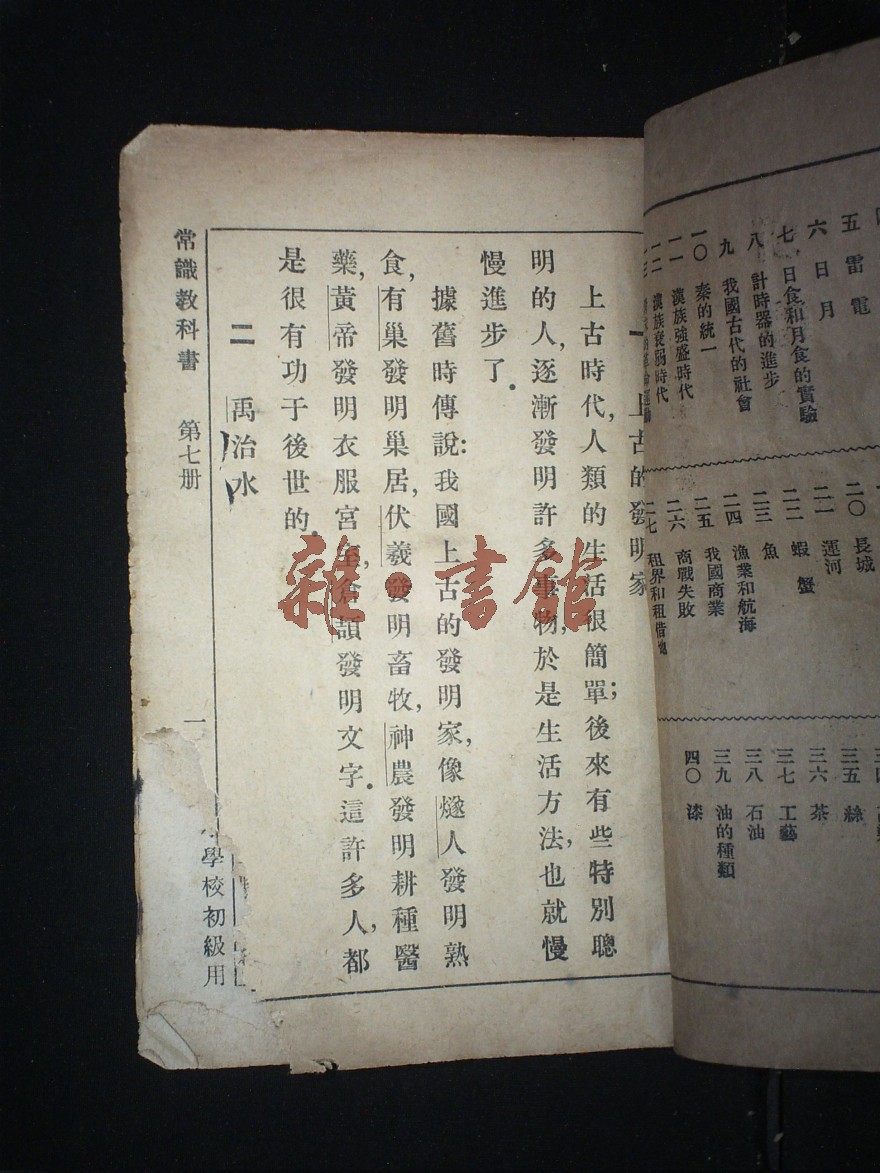 五 雷電
六 日月
七 日食和月食的實驗
八 計時器的進步
九 我國古代的社會
一〇 秦的統一
一一 漢族強盛時代
一二 漢族衰弱時代
二〇 長城
二一 運河
二二 蝦 蟹
二三 魚
二四 漁業和航海
二五 我國商業
二六 商戰失敗
二七 租界和租借地
三五 絲
三六 茶
三七 工藝
三八 石油
三九 油的種類
四〇 漆
一 上古的發明家
上古時代,人類的生活很簡單;後來有些特別聰
明的人,逐漸發明許多事物,於是生活方法,也就慢
慢進步了.
據舊時傳說:我國上古的發明家,像燧人發明熟
食,有巢發明巢居,伏羲發明畜牧,神農發明耕種醫
藥,黃帝發明衣服宮室,倉頡發明文字.這許多人,都
是很有功于後世的.
二 禹治水
常識教科書 第七册 一 學校初級用
雜書館